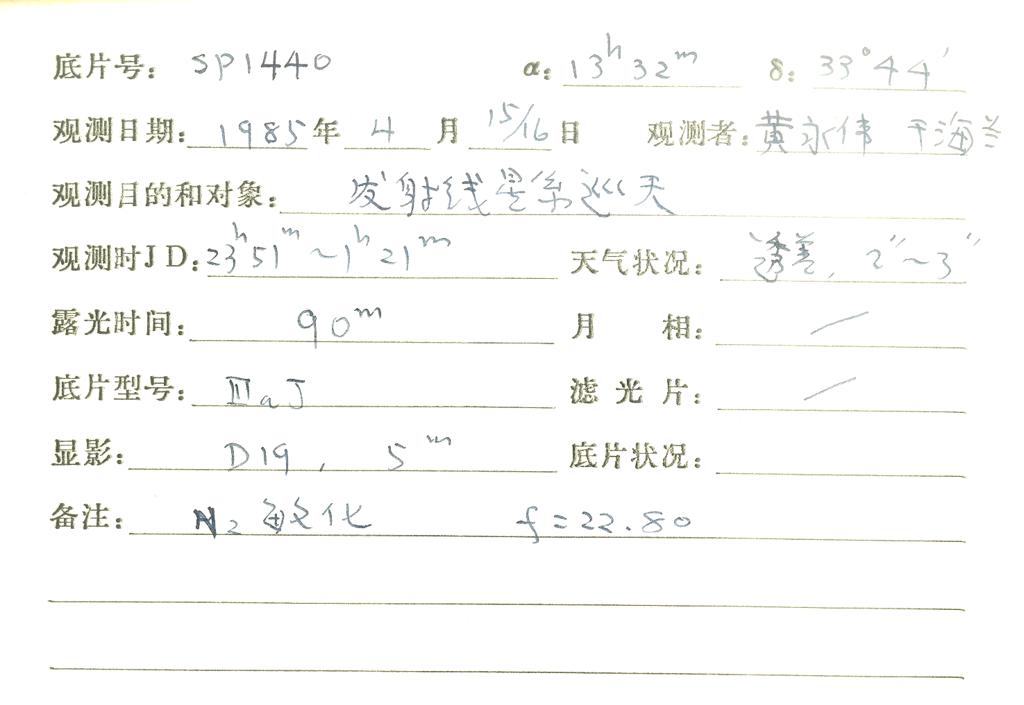 底片号: SP1440 α: 13ʰ32ᵐ δ: 33°44′
观测日期: 1985年 4 月 15/16 日 观测者: 黄永伟 于海兰
观测目的和对象: 发射线星系巡天
观测时JD: 23ʰ51ᵐ~1ʰ21ᵐ 天气状况: 透差, 2″~3″
露光时间: 90ᵐ 月 相: /
底片型号: ⅢaJ 滤光片: /
显影: D19, 5ᵐ 底片状况:
备注: N₂ 敏化 f=22.80